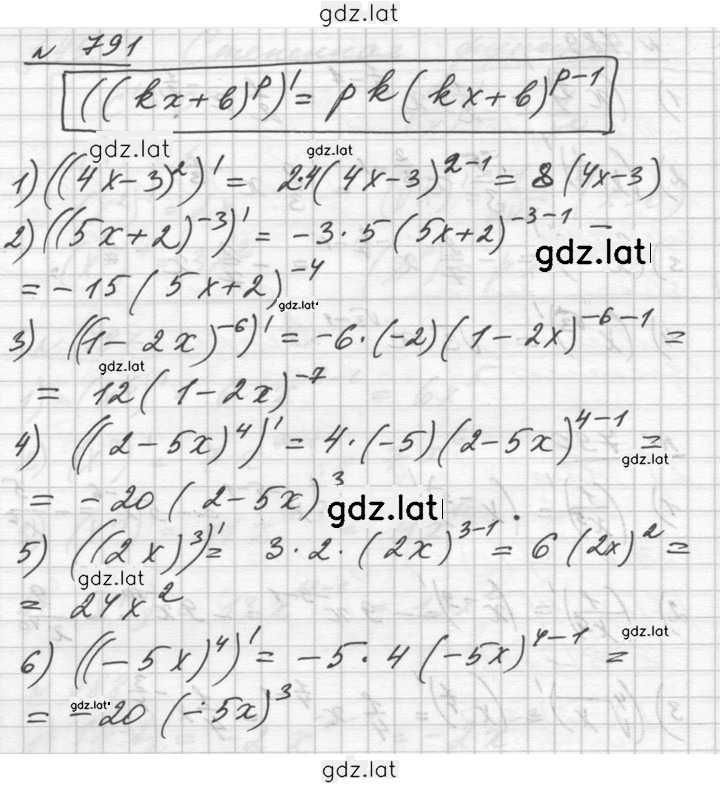 gdz.lat
№ 791
((kx+b)^p)' = pk(kx+b)^{p-1}
gdz.lat gdz.lat
1) ((4x-3)^2)' = 2·4(4x-3)^{2-1} = 8(4x-3)
2) ((5x+2)^{-3})' = -3·5(5x+2)^{-3-1} =
gdz.lat
= -15(5x+2)^{-4}
gdz.lat
3) ((1-2x)^{-6})' = -6·(-2)(1-2x)^{-6-1} =
gdz.lat
= 12(1-2x)^{-7}
4) ((2-5x)^4)' = 4·(-5)(2-5x)^{4-1} =
gdz.lat
= -20(2-5x)^3
gdz.lat
5) ((2x)^3)' = 3·2·(2x)^{3-1} = 6(2x)^2 =
gdz.lat
= 24x^2
gdz.lat
6) ((-5x)^4)' = -5·4(-5x)^{4-1} =
gdz.lat
= -20(-5x)^3
gdz.lat